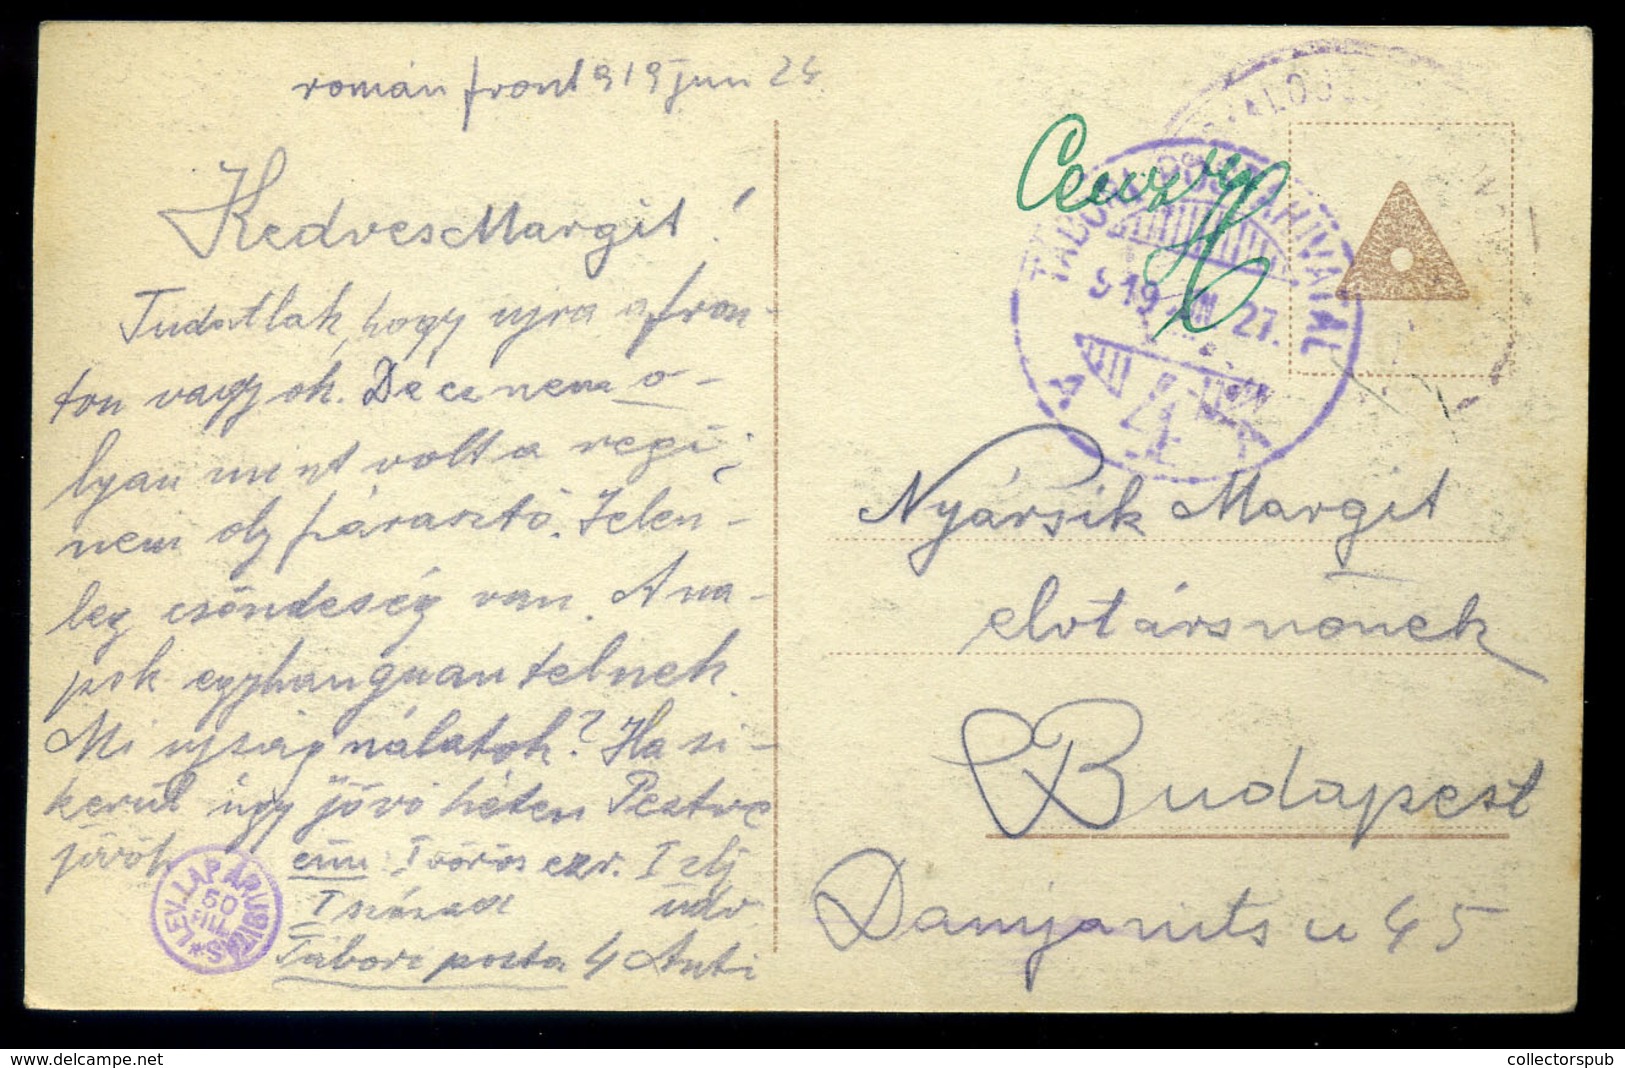 román front 919 jun 24
Kedves Margit!
Tudatlak, hogy ujra a fron-
ton vagyok. De ez nem o-
lyan mint volt a regi,
nem oly párasztó. Jelen-
leg csöndeség van. A na-
pok egyhanguan telnek.
Mi ujság nálatok? Ha si-
kerül úgy jövö héten Pestre
jövök
cím I vörös ezr. I zlj
I század üdv
Tábori posta 4 Anti
LEV. LAP ÁRUSITÁS
50
FILL
Cenzurz
TÁBORI POSTAHIVATAL
919 JUN 27.
A 4
Nyársik Margit
elvtársnönek
Budapest
Damjanits u 45
collectorspub